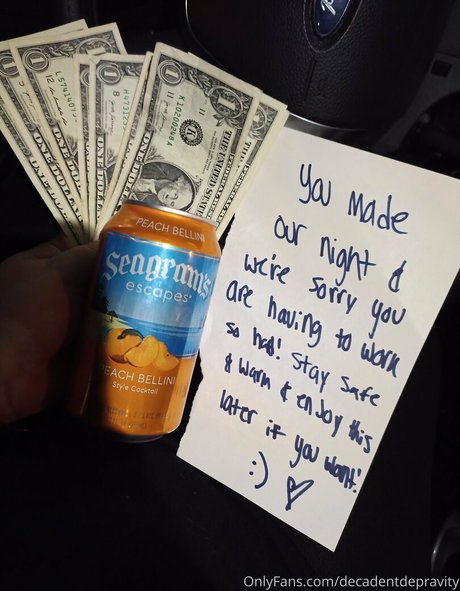 PEACH BELLINI
Seagram's
escapes
PEACH BELLINI
Style Cocktail
You Made
our night &
we're sorry you
are having to work
so had! Stay Safe
& warm & enjoy this
later if you want!
:) ♡
ONE DOLLAR
1
K10200298A
K
11
THE UNITED STATES
OnlyFans.com/decadentdepravity